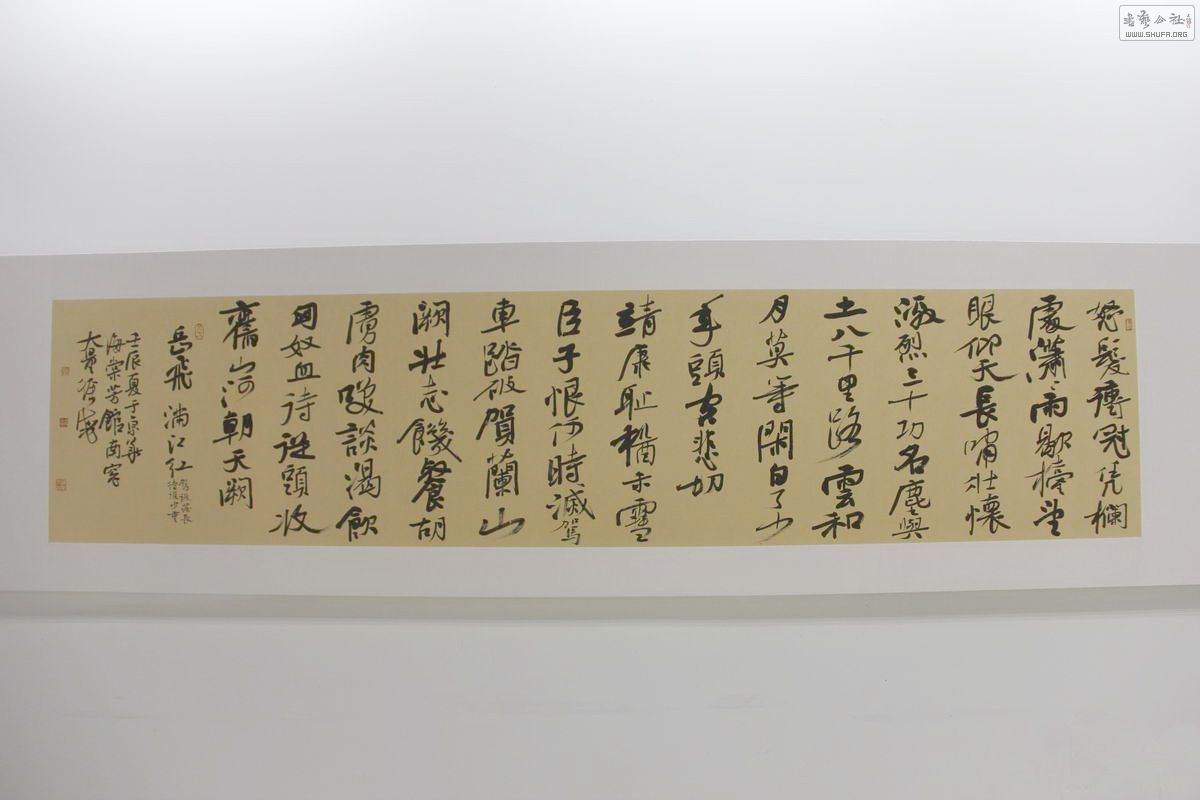 怒髮衝冠凭欄
處瀟瀟雨歇擡望
眼仰天長嘯壯懷
激烈三十功名塵與
土八千里路雲和
月莫等閑白了少
年頭空悲切
靖康耻猶未雪
臣子恨何時滅駕
車踏破賀蘭山
闕壯志饑餐胡
虜肉笑談渴飲
匈奴血待從頭收
舊山河朝天闕
岳飛 滿江紅
壬辰夏于京華
海棠芳館南窗
书藝公社
WWW.SHUFA.ORG